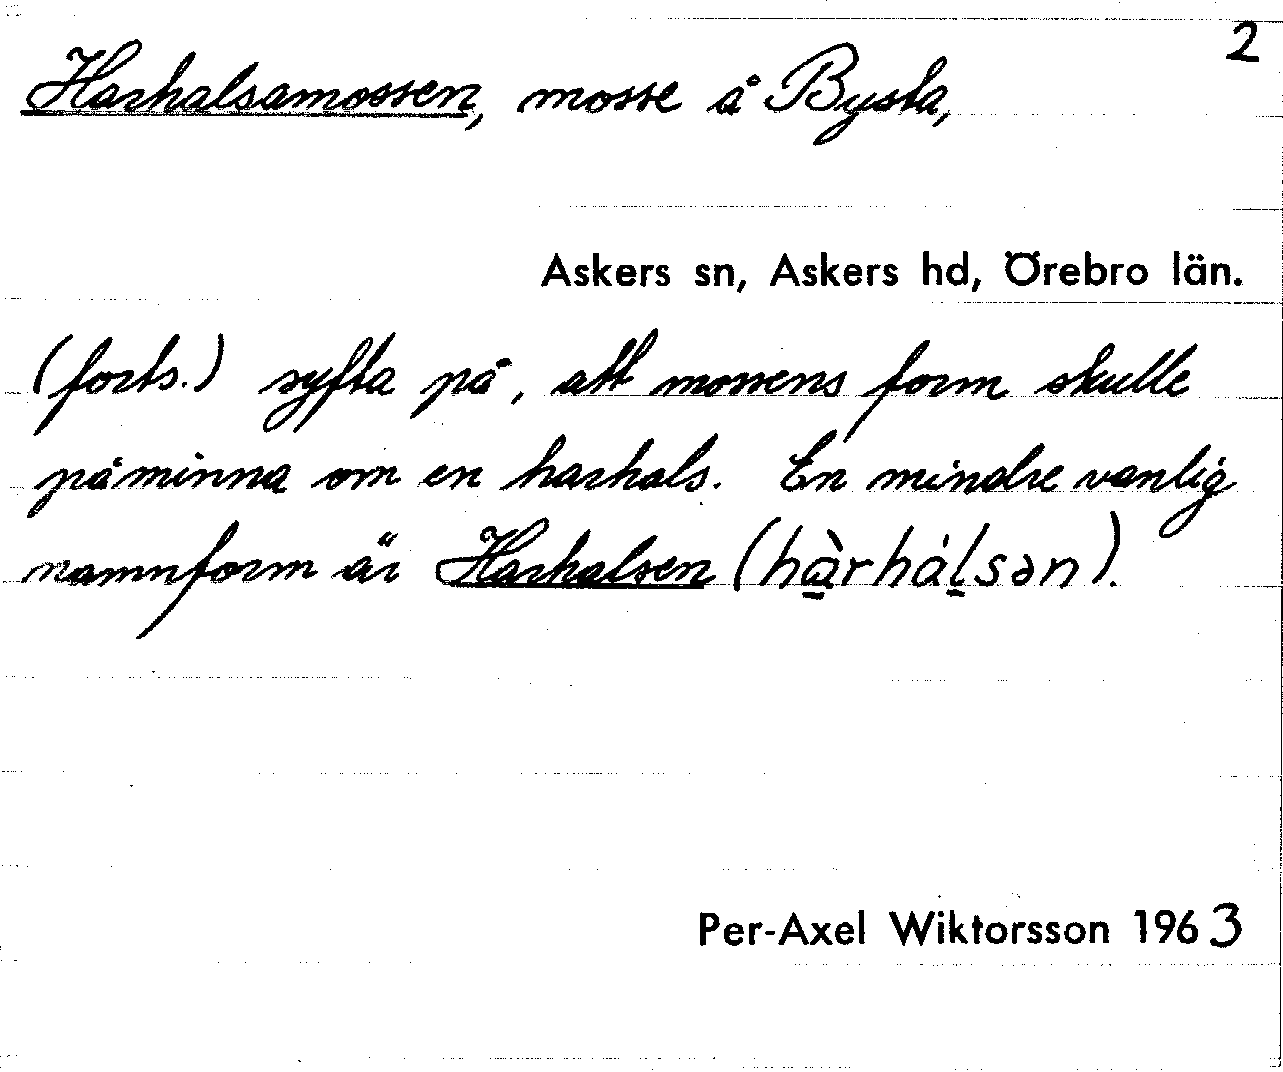 2
Harhalsamossen, mosse å Bysta,
Askers sn, Askers hd, Örebro län.
(forts.) syfta på, att mossens form skulle
påminna om en harhals. En mindre vanlig
namnform är Harhalsen (hàrhálsən).
Per-Axel Wiktorsson 1963